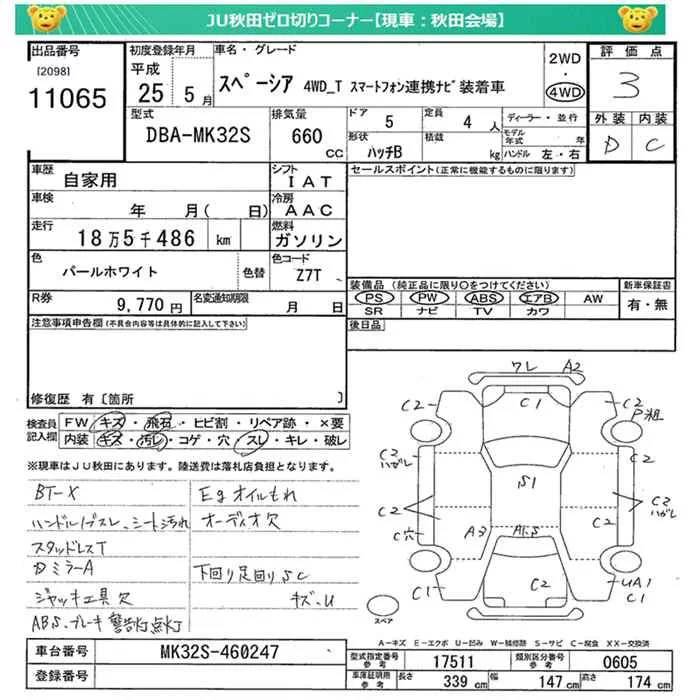 JU秋田ゼロ切りコーナー【現車：秋田会場】
出品番号
[2098]
11065
初度登録年月
平成
25 5月
車名・グレード
スペーシア 4WD_T スマートフォン連携ナビ装着車
2WD
・
4WD
評価点
3
外装 内装
D C
型式
DBA-MK32S
排気量
660
CC
ドア
5
定員
4 人
形状
ハッチB
積載
kg
ディーラー・並行
モデル年式 年
ハンドル 左・右
車歴
自家用
シフト
IAT
車検
年 月( 日)
冷房
AAC
走行
18万5千486 km
燃料
ガソリン
色
パールホワイト
色替
色コード
Z7T
R券
9,770円
名変通知期限
月 日
セールスポイント(正常に機能するものに限ります)
装備品 (純正品に限り○をつけてください)
PS PW ABS エアB AW
SR ナビ TV カワ
新車保証書
有・無
後日品
注意事項申告欄(不具合内容等は具体的に記入して下さい)
修復歴 有〔箇所 〕
検査員記入欄
FW キズ・飛石・ヒビ割・リペア跡・×要
内装 キズ・汚レ・コゲ・穴・スレ・キレ・破レ
※現車はJU秋田にあります。陸送費は落札店負担となります。
BT-X
ハンドルスレ、シート汚れ
スタッドレスT
DミラーA
ジャッキ工具欠
ABS、ブレーキ警告灯点灯
Egオイルもれ
オーディオ欠
下回り足回りSC
キズ・U
ワレ A2
C2
C1
C2
P粗
C2
ハガレ
C2
S1
C2
C2
C2
ハガレ
C穴
A3
C1
C2
UA1
C1
スペア
A-キズ E-エクボ U-凹み W-板修跡 S-サビ C-腐食 XX-交換済
車台番号
MK32S-460247
登録番号
型式指定番号
参考
17511
類別区分番号
参考
0605
車庫証明用
参考
長さ 339 cm 幅 147 cm 高さ 174 cm